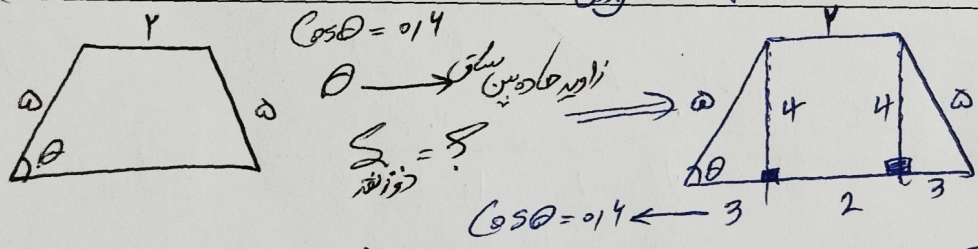 ۲
Cosθ = ۰/۶
θ → زاویه حاده بین ساق
S = ؟
ذوزنقه
۵
۵
θ
⇒
۲
۵
4
4
۵
θ
3
2
3
Cosθ = ۰/۶ ←